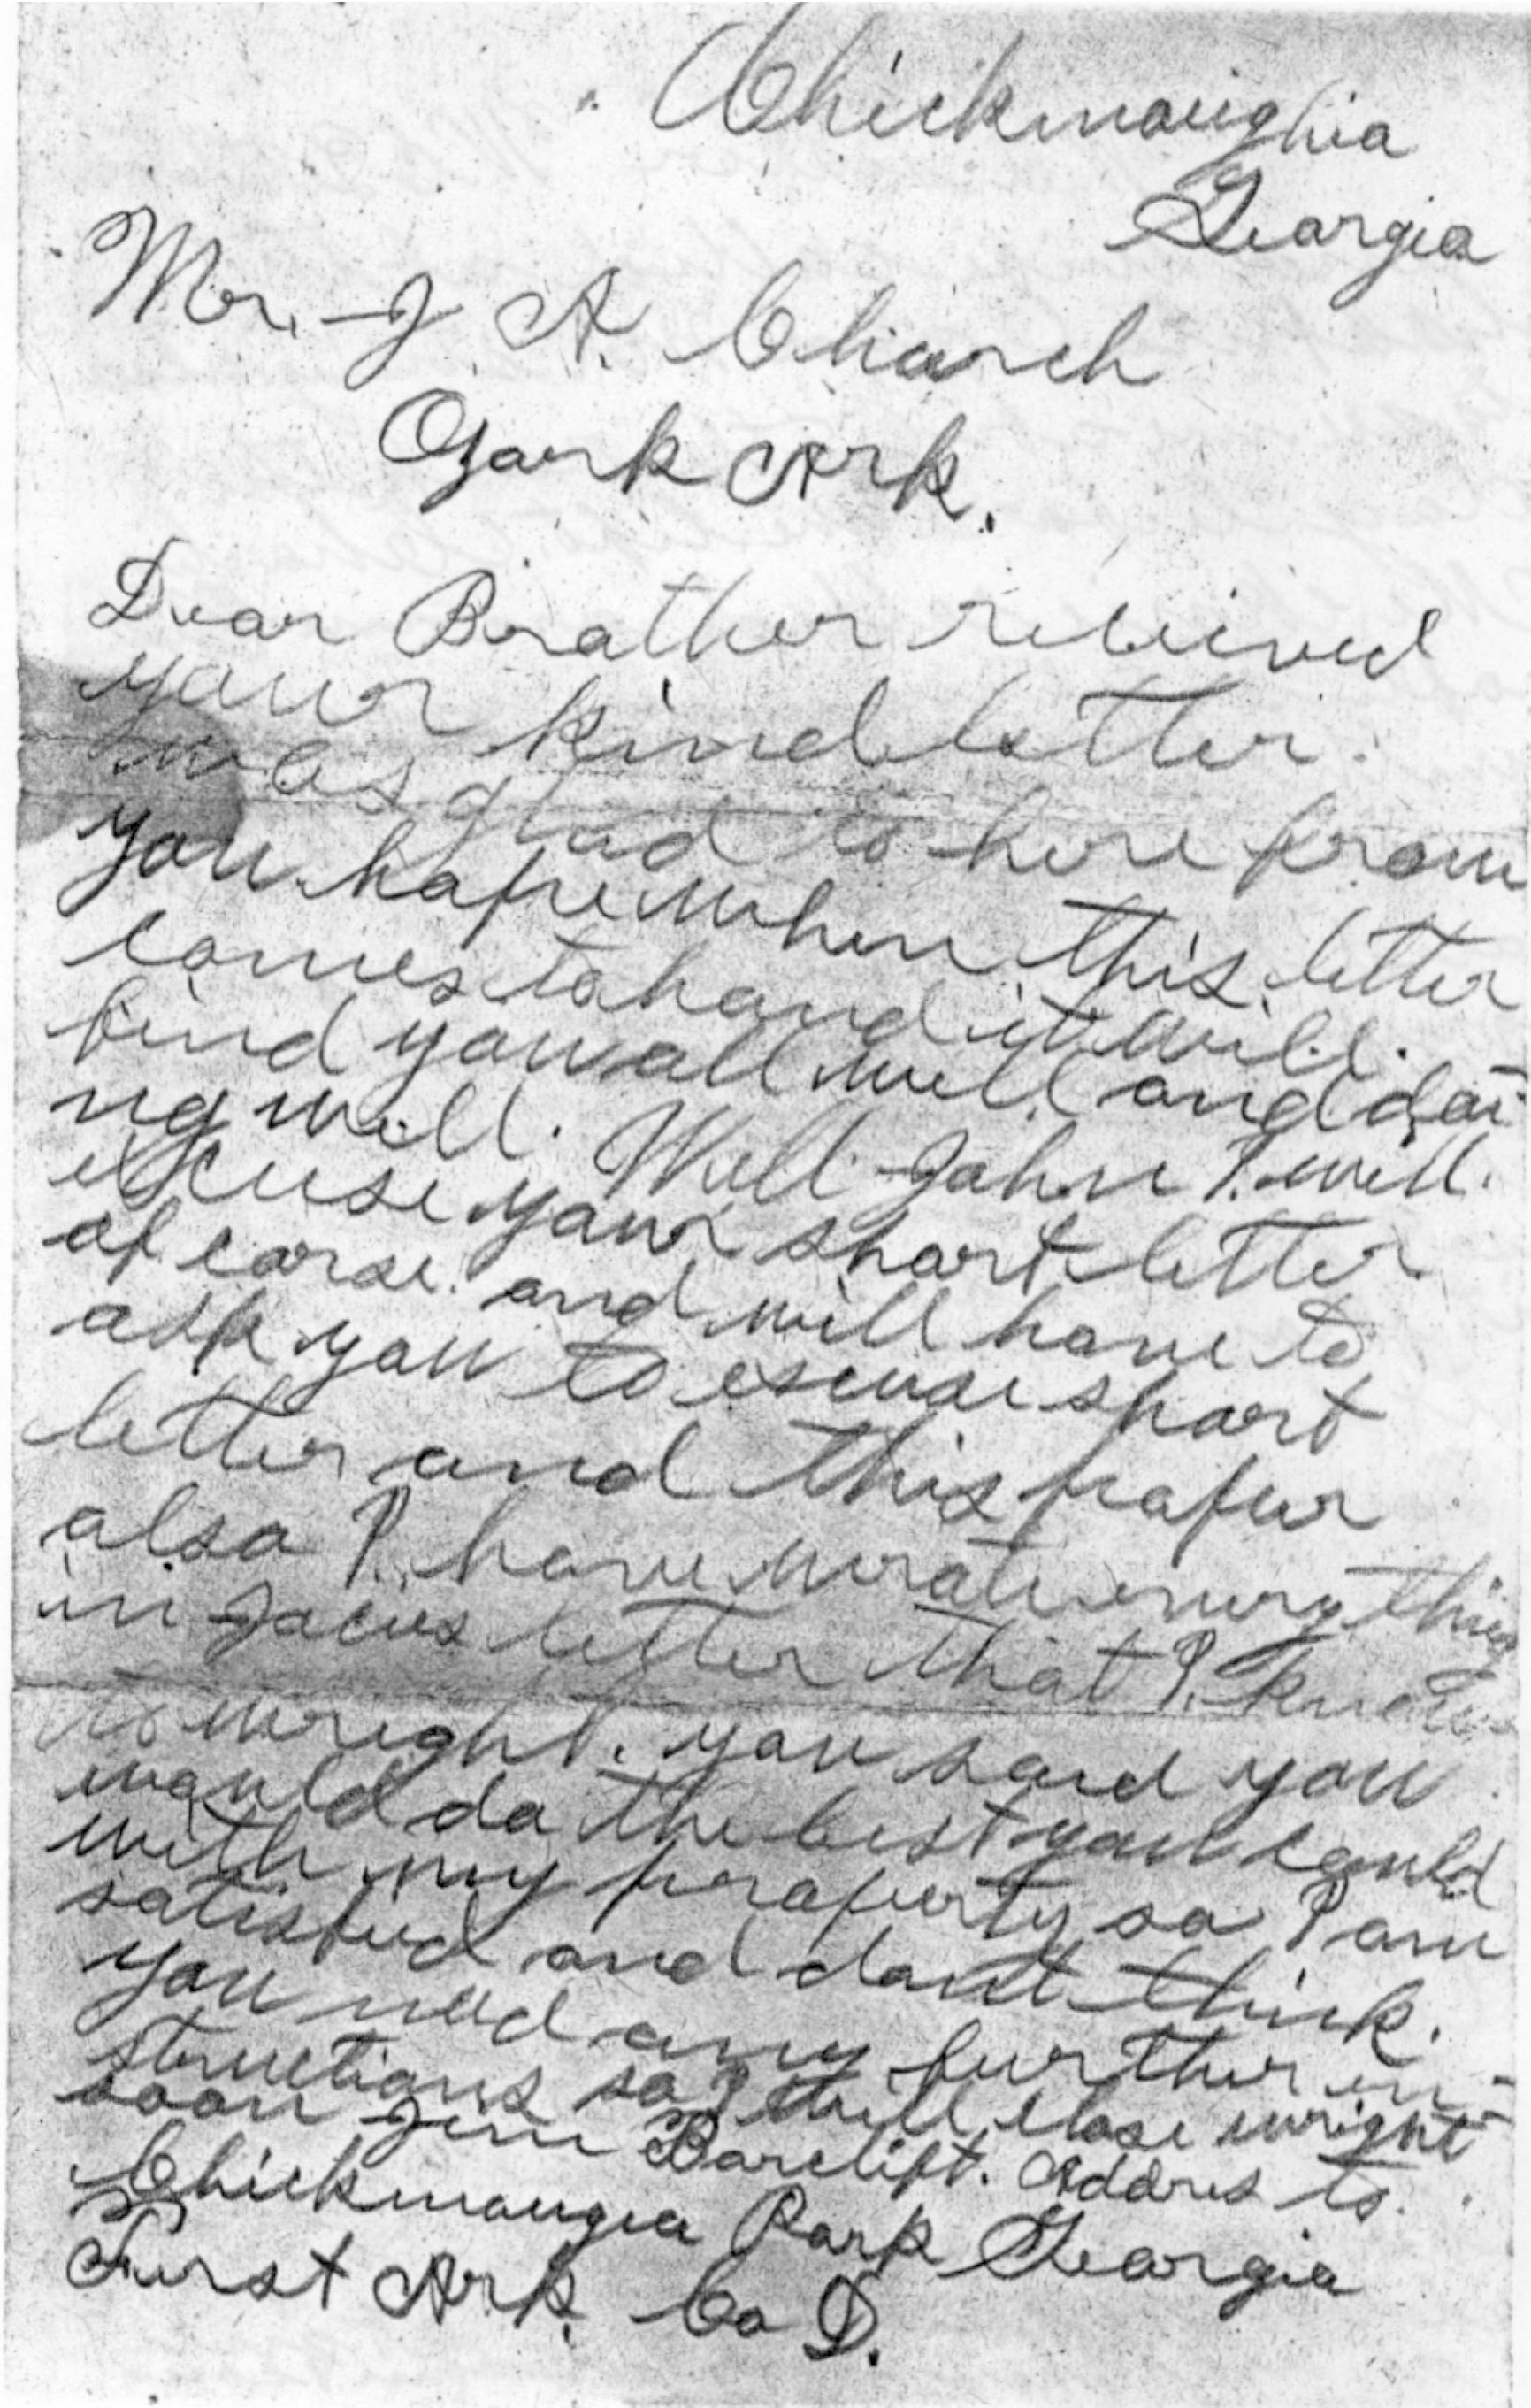 Chickmaughia
Georgia
Mr. J. A. Church
Ozark Ark.
Dear Brother recieved
your kind letter.
was glad to here from
you hope when this letter
comes to hand it will.
find you all well and doi-
ng well. Well John I. will.
excuse your short letter
of corse. and will have to
ask you to escuse short
letter and this paper
also I. have wrote every thing
in letter that I. know
to wright. you said you
would do the best you could
with my property so I am
satisfied and dont think.
you need any further in-
structions so I will close wright
soon Jim Barclift. Addres to.
Chickmaugia Park Georgia
First Ark. Co D.